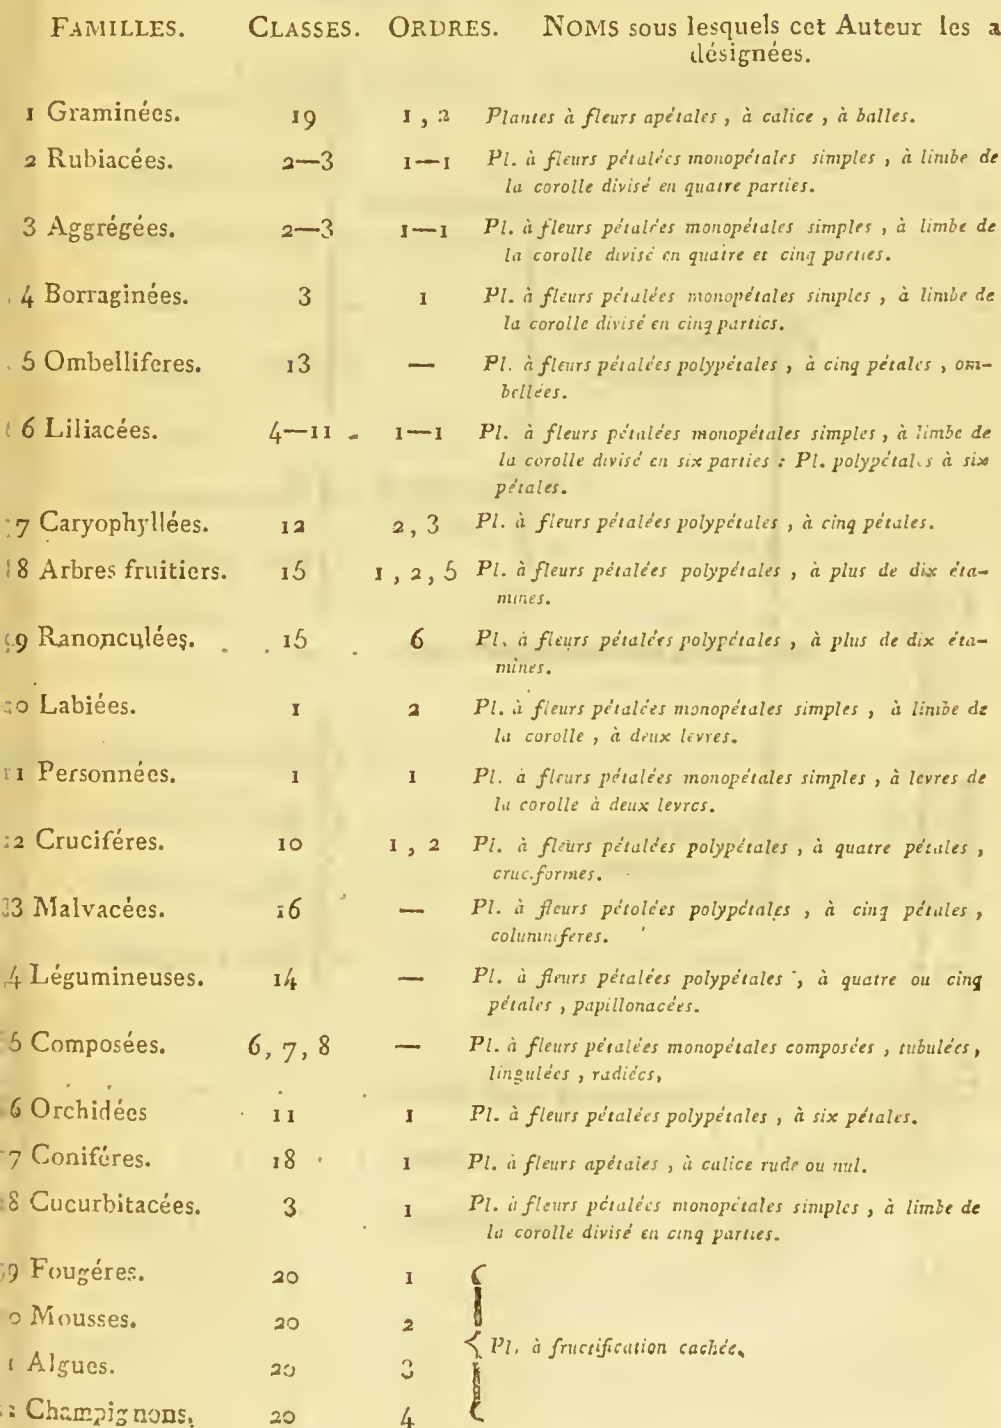 FAMILLES. CLASSES. ORDRES. NOMS sous lesquels cet Auteur les a
désignées.
1 Graminées. 19 1, 2 Plantes à fleurs apétales, à calice, à balles.
2 Rubiacées. 2—3 1—1 Pl. à fleurs pétalées monopétales simples, à limbe de
la corolle divisé en quatre parties.
3 Aggrégées. 2—3 1—1 Pl. à fleurs pétalées monopétales simples, à limbe de
la corolle divisé en quatre et cinq parties.
4 Borraginées. 3 1 Pl. à fleurs pétalées monopétales simples, à limbe de
la corolle divisé en cinq parties.
5 Ombelliferes. 13 — Pl. à fleurs pétalées polypétales, à cinq pétales, om-
bellées.
6 Liliacées. 4—11 1—1 Pl. à fleurs pétalées monopétales simples, à limbe de
la corolle divisé en six parties : Pl. polypétales à six
pétales.
7 Caryophyllées. 12 2, 3 Pl. à fleurs pétalées polypétales, à cinq pétales.
8 Arbres fruitiers. 15 1, 2, 5 Pl. à fleurs pétalées polypétales, à plus de dix éta-
mines.
9 Ranonculées. 15 6 Pl. à fleurs pétalées polypétales, à plus de dix éta-
mines.
0 Labiées. 1 2 Pl. à fleurs pétalées monopétales simples, à limbe de
la corolle, à deux levres.
1 Personnées. 1 1 Pl. à fleurs pétalées monopétales simples, à levres de
la corolle à deux levres.
2 Cruciféres. 10 1, 2 Pl. à fleurs pétalées polypétales, à quatre pétales,
cruciformes.
3 Malvacées. 16 — Pl. à fleurs pétolées polypétales, à cinq pétales,
columniferes.
4 Légumineuses. 14 — Pl. à fleurs pétalées polypétales, à quatre ou cinq
pétales, papillonacées.
5 Composées. 6, 7, 8 — Pl. à fleurs pétalées monopétales composées, tubulées,
lingulées, radiées,
6 Orchidées 11 1 Pl. à fleurs pétalées polypétales, à six pétales.
7 Coniféres. 18 1 Pl. à fleurs apétales, à calice rude ou nul.
8 Cucurbitacées. 3 1 Pl. à fleurs pétalées monopétales simples, à limbe de
la corolle divisé en cinq parties.
9 Fougéres. 20 1
0 Mousses. 20 2
Pl. à fructification cachée.
1 Algues. 20 3
2 Champignons. 20 4